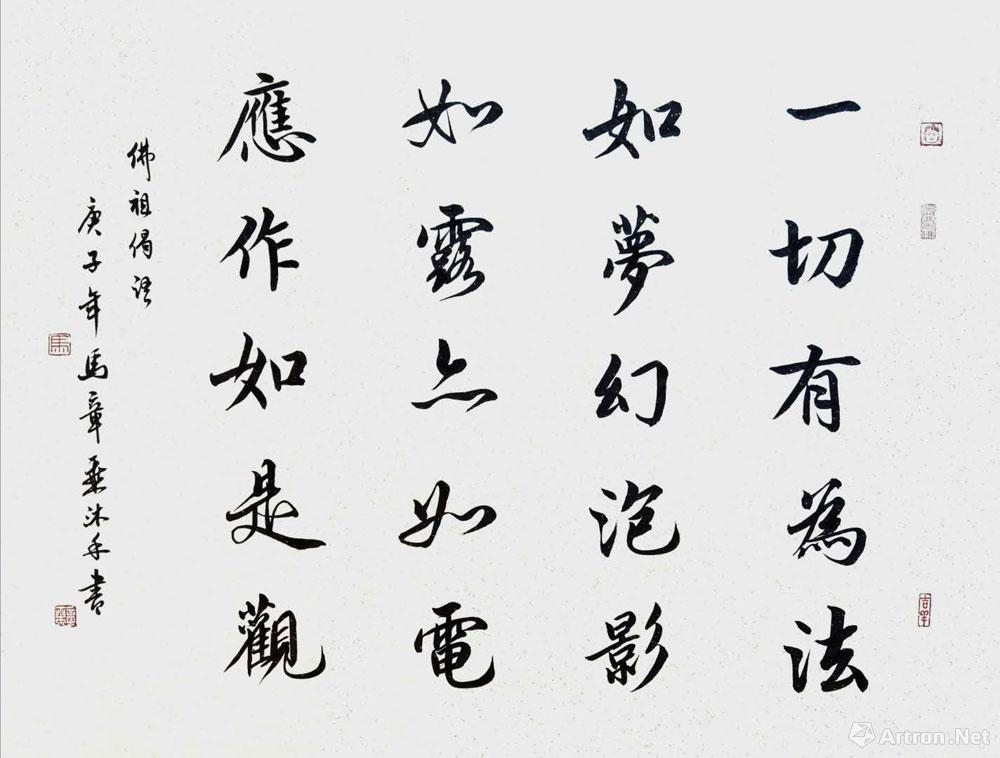 一切有為法
如夢幻泡影
如露亦如電
應作如是觀
佛祖偈語
庚子年馬章乘沐手書
馬
Artron.Net